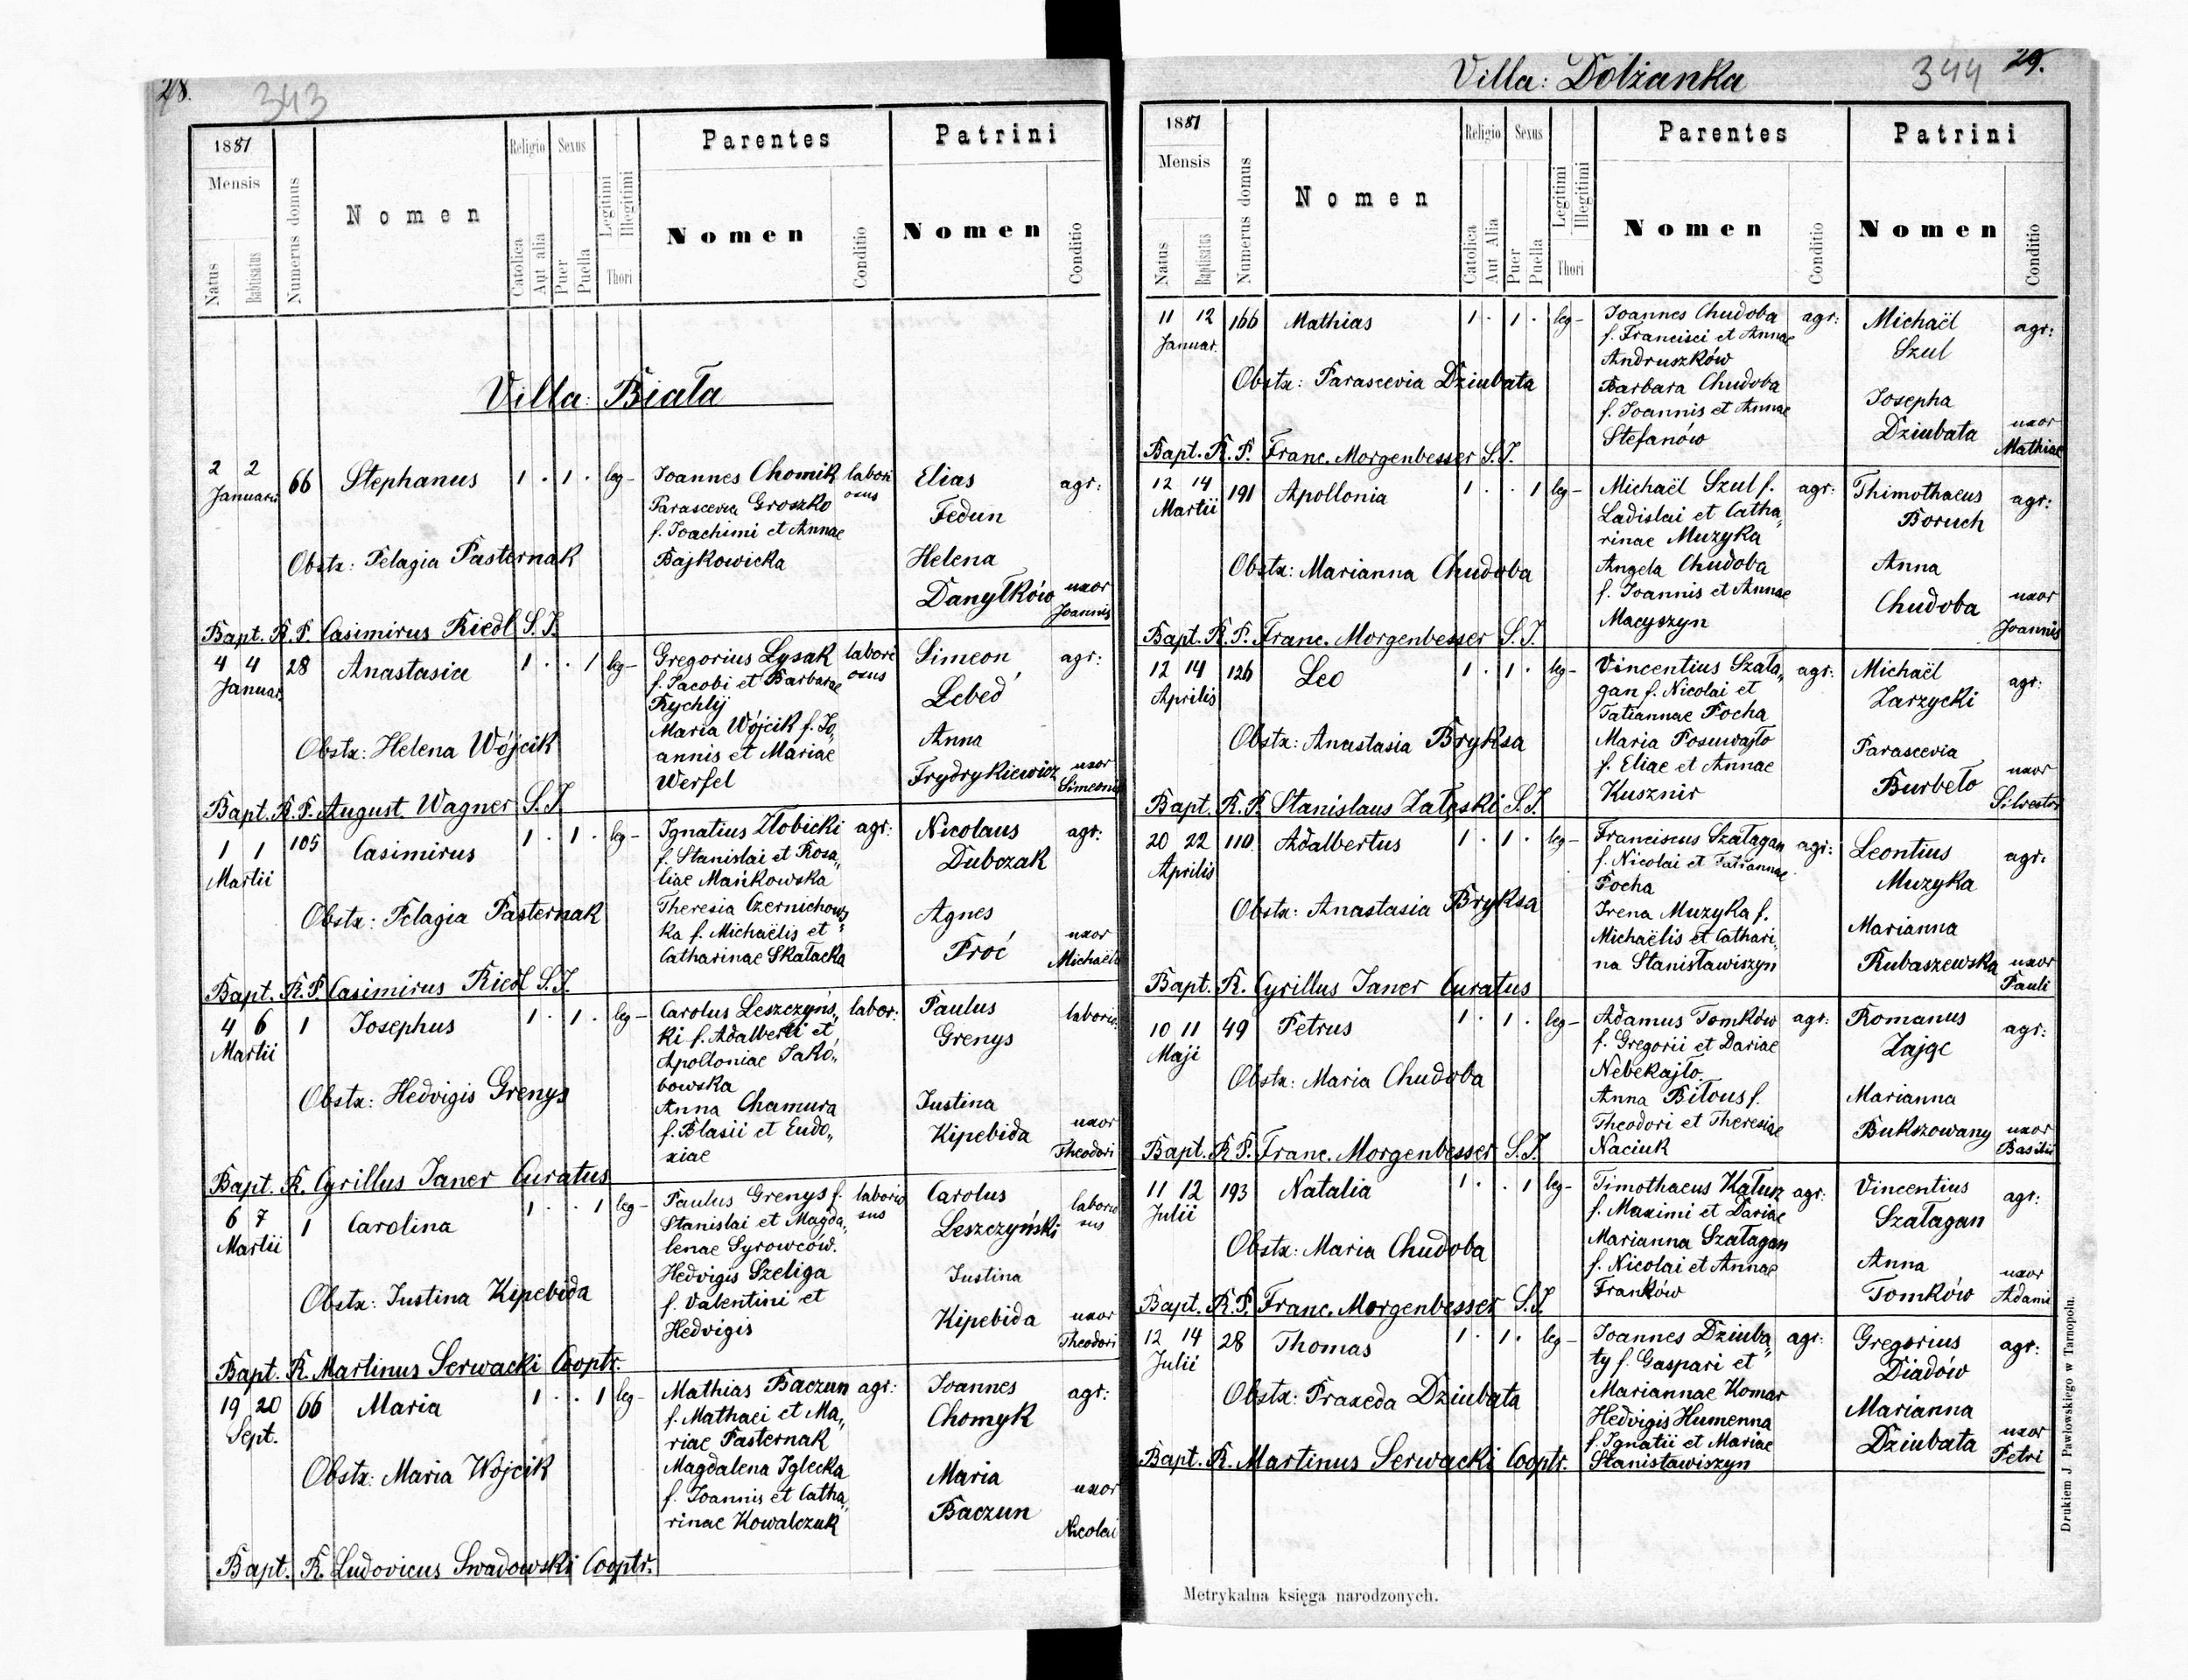 28.
343
1881
Mensis
Natus
Babtisatus
Numerus domus
Nomen
Religio
Catolica
Aut alia
Sexus
Puer
Puella
Legitimi
Illegitimi
Thori
Parentes
Nomen
Conditio
Patrini
Nomen
Conditio
Villa: Biała
2 2 66 Stephanus 1 · 1 · leg- Joannes Chomik labori Elias agr:
Januarii Parascevia Groszko osus Fedun
f. Joachimi et Annae
Obstx: Pelagia Pasternak Bajkowicka Helena
Danyłków uxor
Joannis
Bapt. R. P. Casimirus Riedl S.J.
4 4 28 Anastasia 1 · · 1 leg- Gregorius Łysak labori Simeon agr:
Januar. f. Jacobi et Barbarae osus Lebed
Rychlij
Maria Wójcik f. Jo„
Obstx: Helena Wójcik annis et Mariae Anna
Werfel Frydrykiewicz uxor
Simeonis
Bapt. R. P. August Wagner S.J.
1 1 105 Casimirus 1 · 1 · leg- Ignatius Złobicki agr: Nicolaus agr:
Martii f. Stanislai et Rosa„ Dubczak
liae Mańkowska
Obstx: Pelagia Pasternak Theresia Czernichows„ Agnes
ka f. Michaëlis et uxor
Catharinae Skałacka Proć Michaëlis
Bapt. R. P. Casimirus Riedl S.J.
4 6 1 Josephus 1 · 1 · leg- Carolus Leszczyńs„ labor: Paulus laborio:
Martii ki f. Adalberti et Grenys
Apolloniae Jakó„
bowska
Obstx: Hedvigis Grenys Anna Chamura Justina
f. Blasii et Eudo„ Kipebida uxor
xiae Theodori
Bapt. R. Cyrillus Janer Curatus
6 7 1 Carolina 1 · · 1 leg- Paulus Grenys f. laborio Carolus laborio
Martii Stanislai et Magda„ sus Leszczyński sus
lenae Syrowców.
Hedvigis Szeliga Justina
Obstx: Justina Kipebida f. Valentini et Kipebida uxor
Hedvigis Theodori
Bapt. R. Martinus Serwacki Cooptr.
19 20 66 Maria 1 · · 1 leg- Mathias Baczun agr: Joannes agr:
Sept. f. Mathaei et Ma„ Chomyk
riae Pasternak
Obstx: Maria Wojcik Magdalena Iglecka Maria uxor
f. Joannis et Catha„ Baczun
rinae Kowalczuk Nicolai
Bapt. R. Ludovicus Swadowski Cooptr.
Villa: Dołżanka
344
29.
1881
Mensis
Natus
Baptisatus
Numerus domus
Nomen
Religio
Catolica
Aut Alia
Sexus
Puer
Puella
Legitimi
Illegitimi
Thori
Parentes
Nomen
Conditio
Patrini
Nomen
Conditio
11 12 166 Mathias 1 · 1 · leg- Joannes Chudoba agr: Michaël agr:
Januar. f. Francisci et Annae Szul
Andruszków
Obstx: Parascevia Dziubata Barbara Chudoba Josepha
f. Joannis et Annae Dziubata uxor
Stefanów Mathiae
Bapt. R. P. Franc. Morgenbesser S.J.
12 14 191 Apollonia 1 · · 1 leg- Michaël Szul f. agr: Thimothaeus agr:
Martii Ladislai et Catha„ Boruch
rinae Muzyka
Obstx: Marianna Chudoba Angela Chudoba Anna
f. Joannis et Annae Chudoba uxor
Macyszyn Joannis
Bapt. R. P. Franc. Morgenbesser S.J.
12 14 126 Leo 1 · 1 · leg- Vincentius Szała„ agr: Michaël agr:
Aprilis gan f. Nicolai et Zarzycki
Tatiannae Pocha
Obstx: Anastasia Bryksa Maria Posuwajło Parascevia
f. Eliae et Annae Burbeło uxor
Kusznir Silvestri
Bapt. R. P. Stanislaus Załęski S.J.
20 22 110 Adalbertus 1 · 1 · leg- Franciscus Szałagan agr: Leontius agr:
Aprilis f. Nicolai et Tatiannae Muzyka
Pocha
Obstx: Anastasia Bryksa Irena Muzyka f. Marianna
Michaëlis et Cathari„ Rubaszewska uxor
na Stanisławiszyn Pauli
Bapt. R. Cyrillus Janer Curatus
10 11 49 Petrus 1 · 1 · leg- Adamus Tomków agr: Romanus agr:
Maji f. Gregorii et Dariae Zając
Nebekajło.
Obstx: Maria Chudoba Anna Biłous f. Marianna
Theodori et Theresiae Bukszowany uxor
Naciuk Basilii
Bapt. R. P. Franc. Morgenbesser S.J.
11 12 193 Natalia 1 · · 1 leg- Timothaeus Kałuz agr: Vincentius agr:
Julii f. Maximi et Dariae Szałagan
Obstx: Maria Chudoba Marianna Szałagan Anna
f. Nicolai et Annae Tomków uxor
Franków Adami
Bapt. R. P. Franc. Morgenbesser S.J.
12 14 28 Thomas 1 · 1 · leg- Joannes Dziuba„ agr: Gregorius agr:
Julii ty f. Gaspari et Diadów
Obstx: Praxeda Dziubata Mariannae Komar Marianna
Hedvigis Humenna Dziubata uxor
f. Ignatii et Mariae Petri
Stanisławiszyn
Bapt. R. Martinus Serwacki Cooptr.
Metrykalna księga narodzonych.
Drukiem J. Pawłowskiego w Tarnopolu.